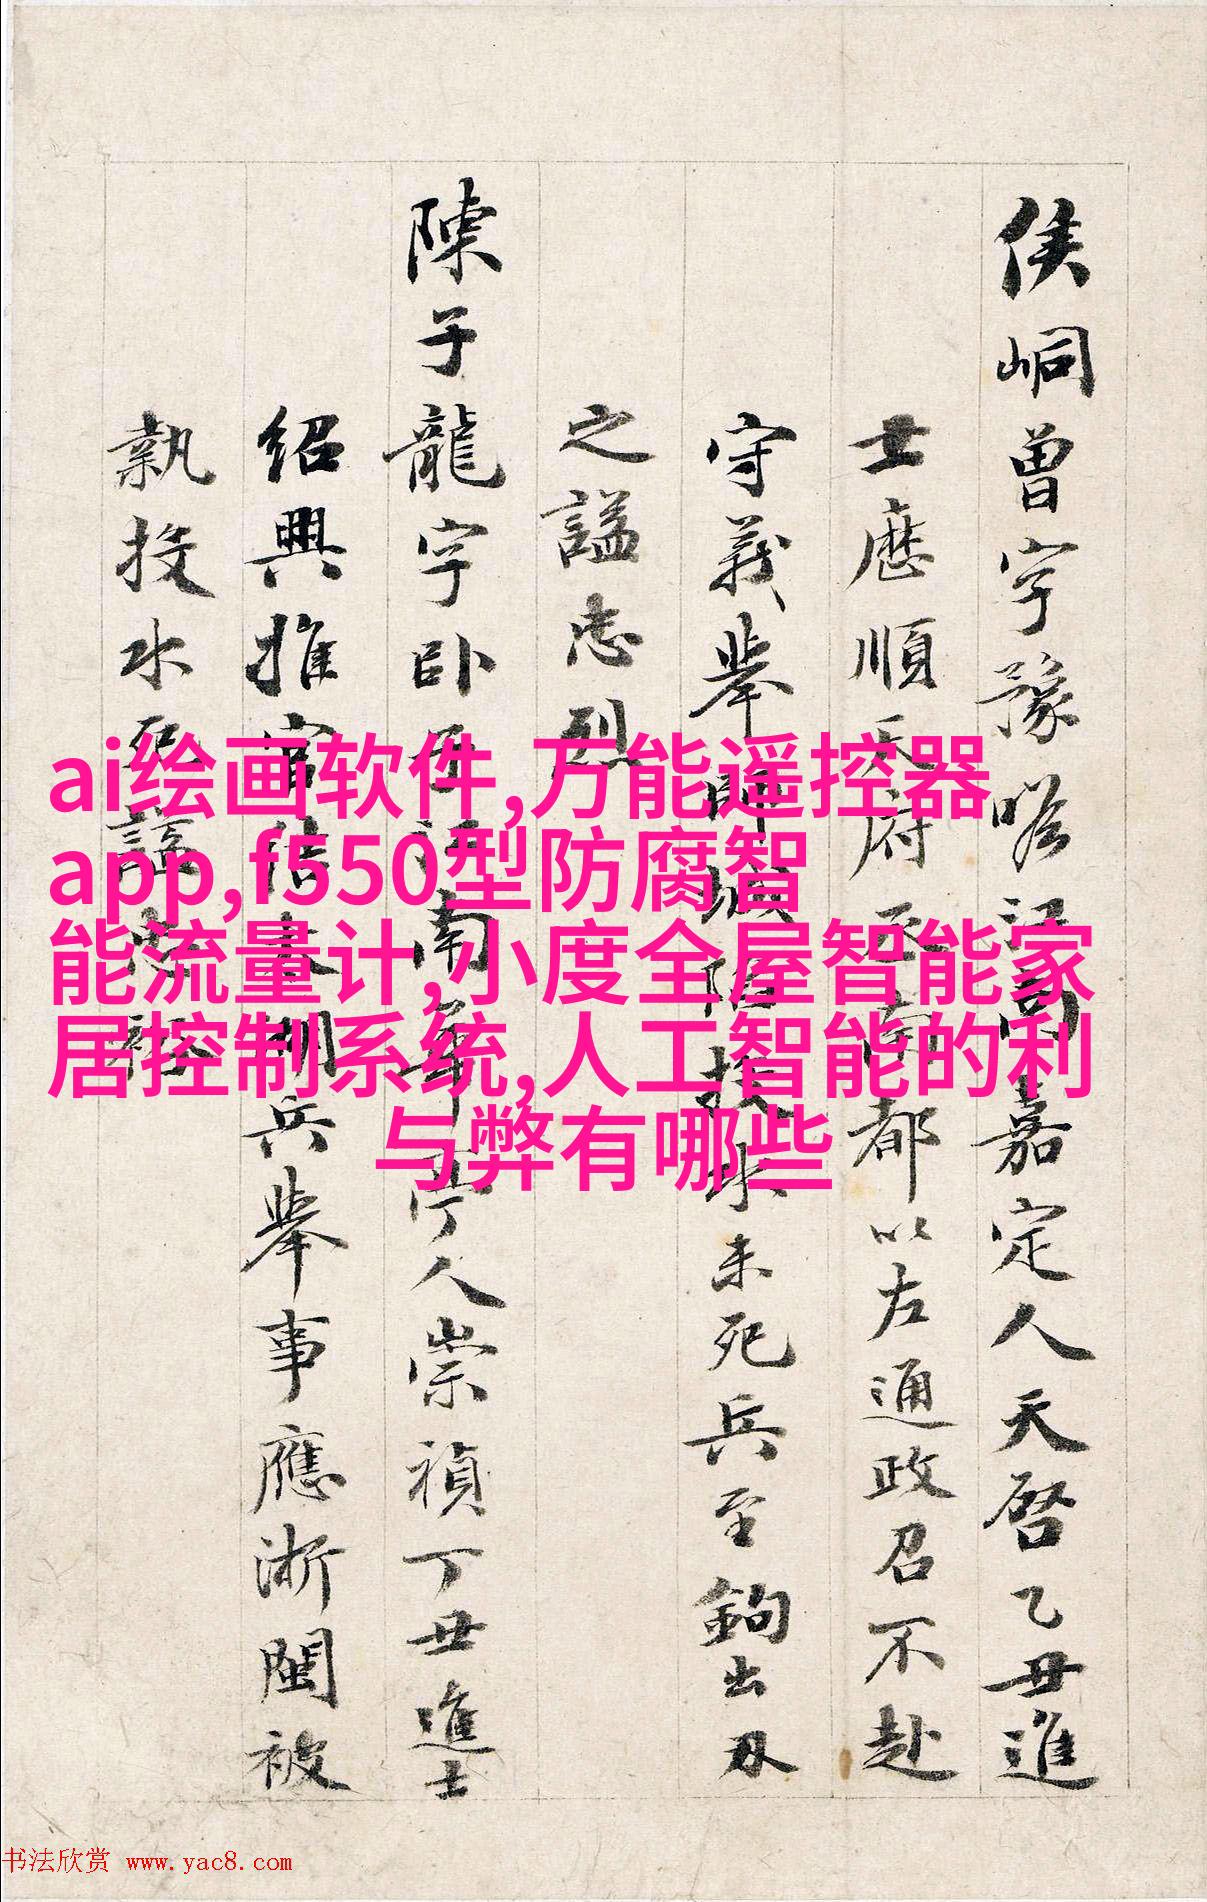 侯峒曾字豫瞻江南嘉定人天啓乙丑進
士歷順天府丞南都以左通政召不赴
守義舉師城陷投水未死兵至鉤出刃
之謚忠烈
陳子龍字卧子江南華亭人崇禎丁丑進士
紹興推官 兵舉事應浙閩被
執投水死謚忠裕
ai绘画软件,万能遥控器
app,f550型防腐智
能流量计,小度全屋智能家
居控制系统,人工智能的利
与弊有哪些
书法欣赏 www.yac8.com